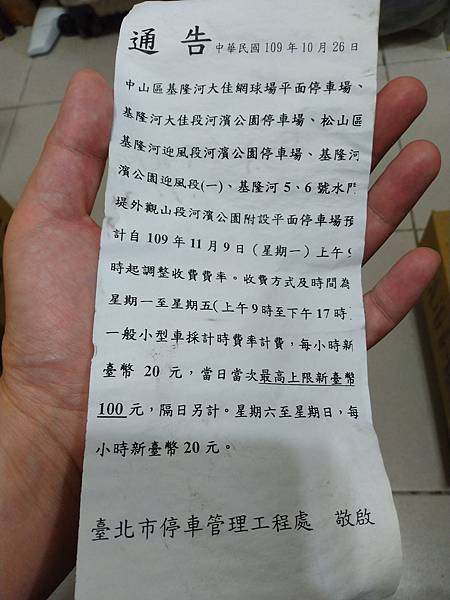 通告 中華民國 109 年 10 月 26 日
中山區基隆河大佳網球場平面停車場、
基隆河大佳段河濱公園停車場、松山區
基隆河迎風段河濱公園停車場、基隆河
濱公園迎風段(一)、基隆河 5、6 號水門
堤外觀山段河濱公園附設平面停車場預
計自 109 年 11 月 9 日（星期一）上午 9
時起調整收費費率。收費方式及時間為
星期一至星期五(上午 9 時至下午 17 時
一般小型車採計時費率計費，每小時新
臺幣 20 元，當日當次最高上限新臺幣
100 元，隔日另計。星期六至星期日，每
小時新臺幣 20 元。
臺北市停車管理工程處 敬啟